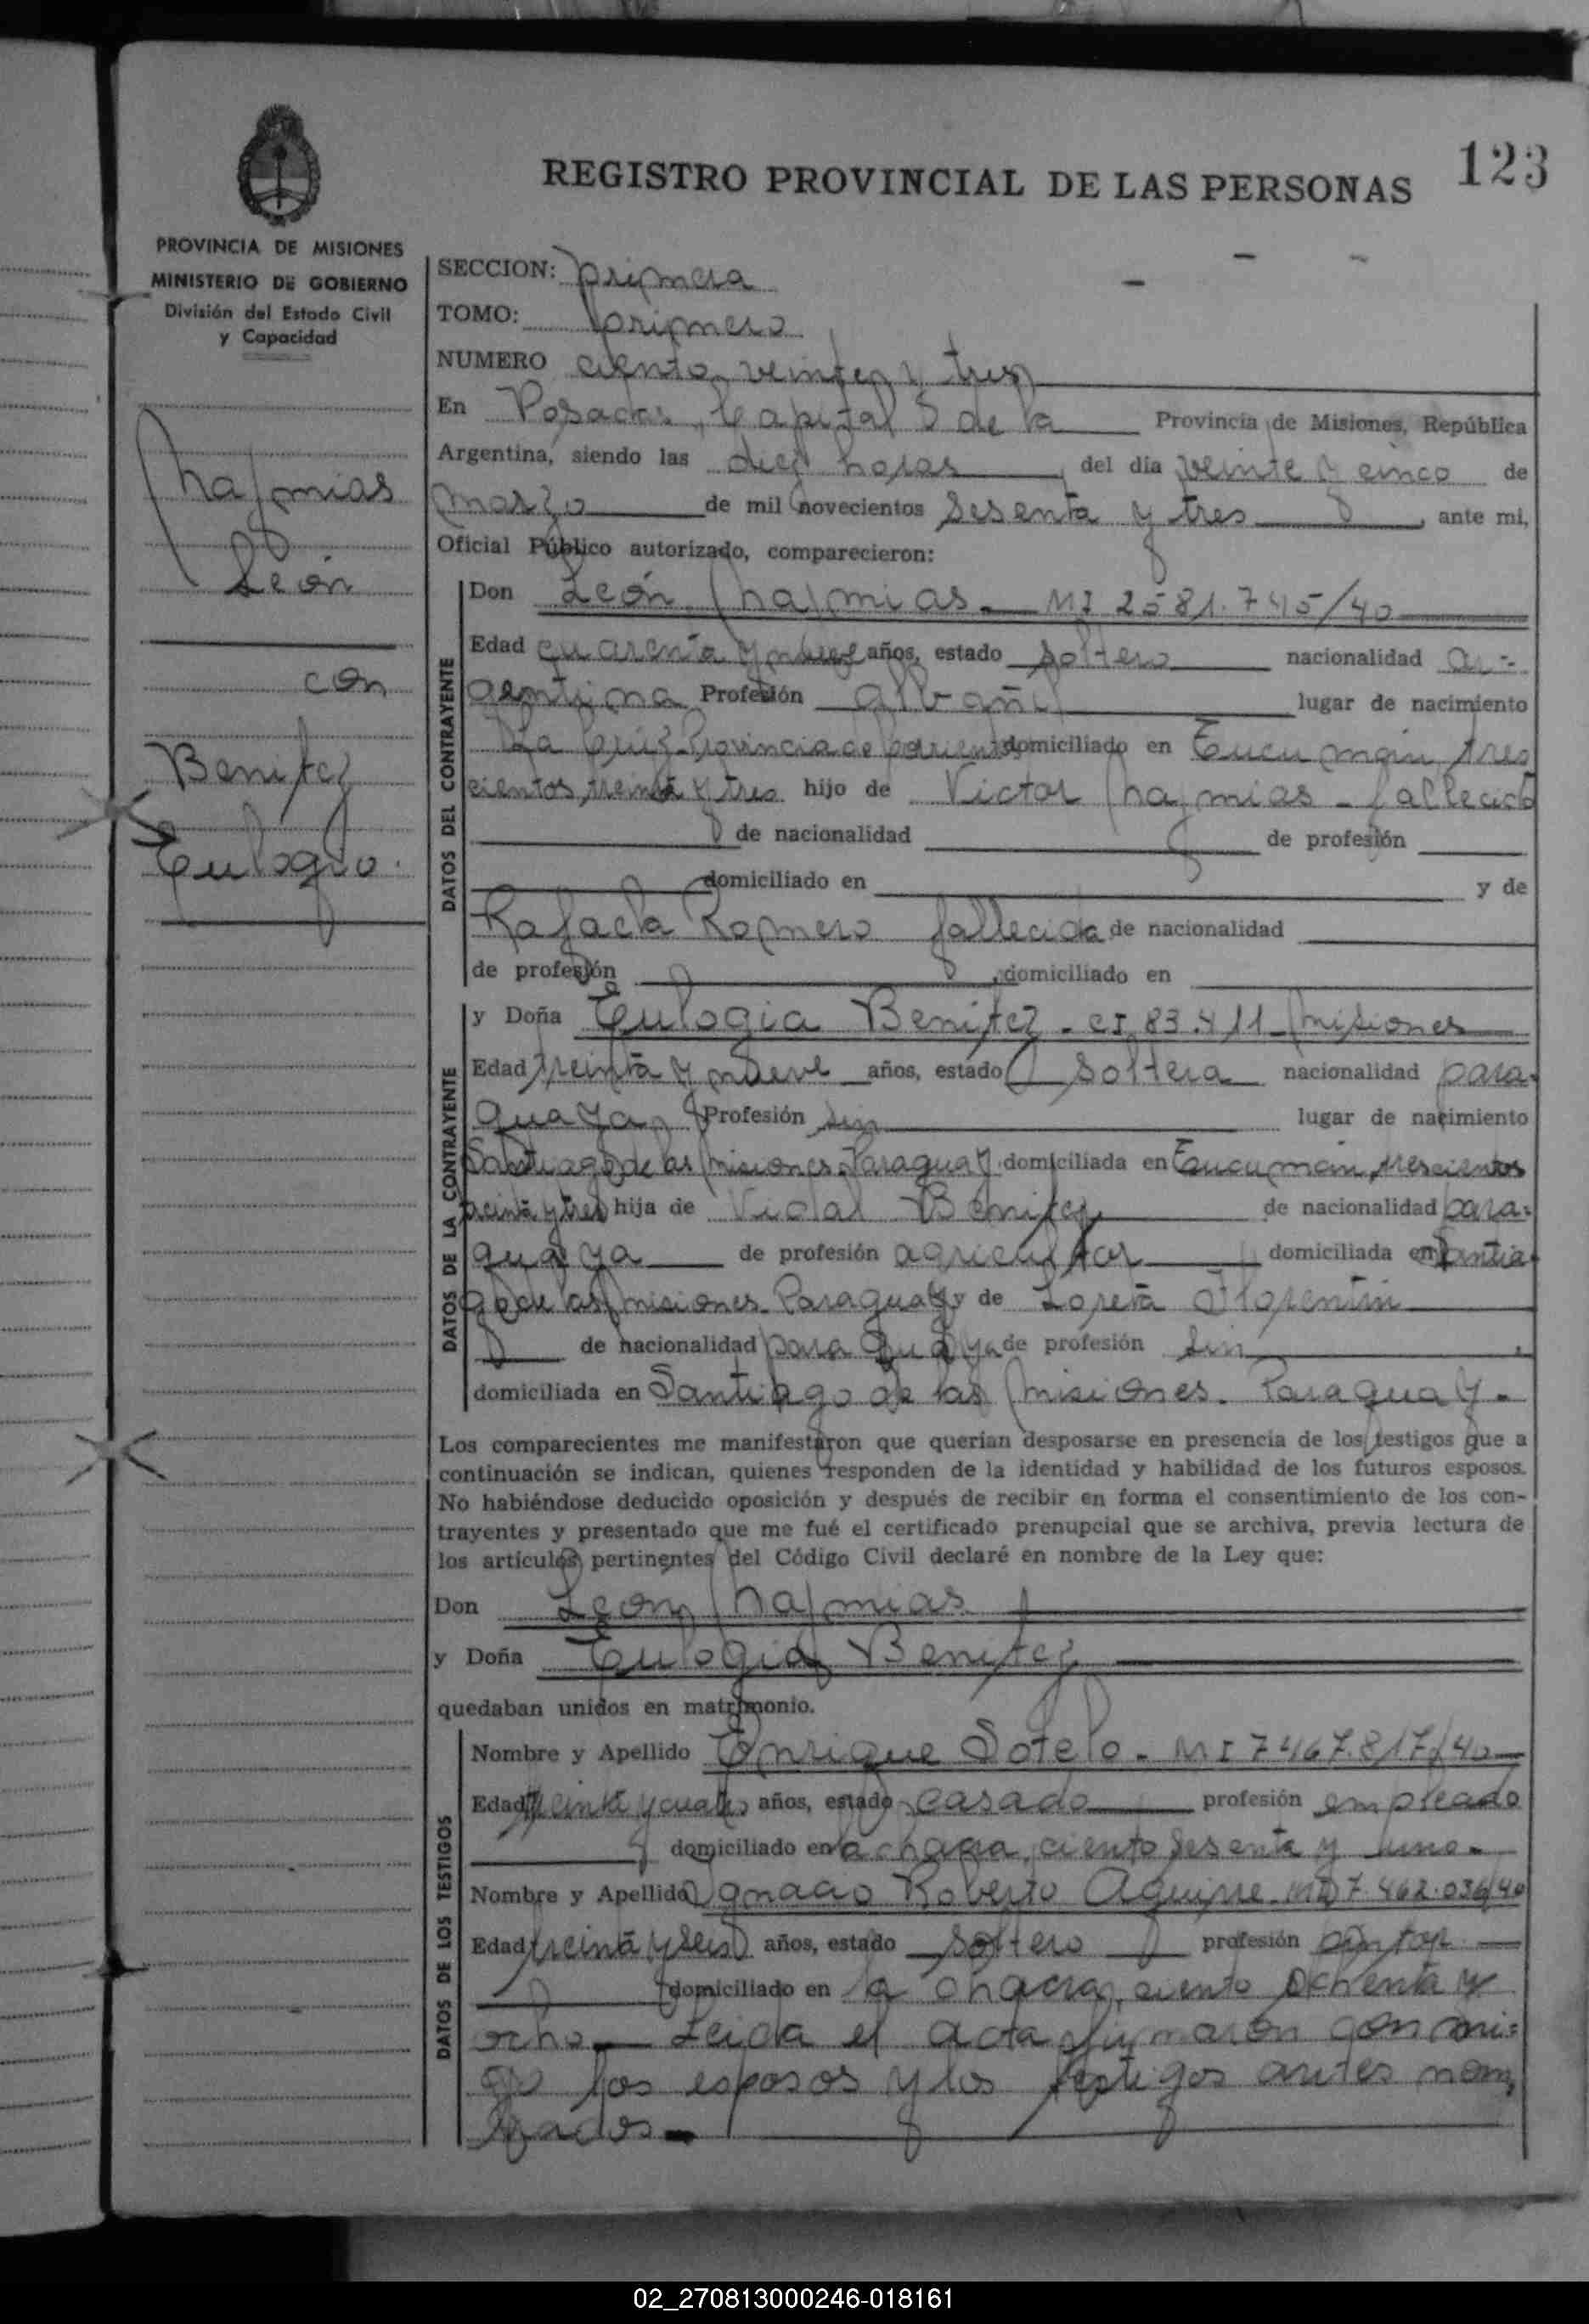 123
REGISTRO PROVINCIAL DE LAS PERSONAS
PROVINCIA DE MISIONES
MINISTERIO DE GOBIERNO
División del Estado Civil
y Capacidad
León
con
Benitez
Eulogia
SECCION: primera
TOMO: primero
NUMERO ciento veinte y tres
En Posadas, Capital de la Provincia de Misiones, República
Argentina, siendo las diez horas del día veinte y cinco de
marzo de mil novecientos sesenta y tres, ante mi,
Oficial Público autorizado, comparecieron:
DATOS DEL CONTRAYENTE
Don León MI 2581.745/40
Edad cuarenta y nueve años, estado soltero nacionalidad ar-
gentina Profesión albañil lugar de nacimiento
La Cruz-Provincia de Corrientes domiciliado en Tucumán, tres
cientos treinta y tres hijo de Victor fallecido
de nacionalidad de profesión
domiciliado en y de
Rafaela Romero fallecida de nacionalidad
de profesión , domiciliado en
DATOS DE LA CONTRAYENTE
y Doña Eulogia Benitez - CI 83.411 - Misiones
Edad treinta y nueve años, estado soltera nacionalidad para-
guaya Profesión sin lugar de nacimiento
Santiago de las Misiones-Paraguay domiciliada en Tucumán, trescientos
treinta y tres hija de Vidal Benitez de nacionalidad para-
guaya de profesión agricultor domiciliada en Santia-
go de las Misiones-Paraguay y de Loreta Florentin
de nacionalidad paraguaya de profesión sin,
domiciliada en Santiago de las Misiones. Paraguay-
Los comparecientes me manifestaron que querían desposarse en presencia de los testigos que a
continuación se indican, quienes responden de la identidad y habilidad de los futuros esposos.
No habiéndose deducido oposición y después de recibir en forma el consentimiento de los con-
trayentes y presentado que me fué el certificado prenupcial que se archiva, previa lectura de
los artículos pertinentes del Código Civil declaré en nombre de la Ley que:
Don León
y Doña Eulogia Benitez
quedaban unidos en matrimonio.
DATOS DE LOS TESTIGOS
Nombre y Apellido Enrique Sotelo - MI 7467.817/40
Edad treinta y cuatro años, estado casado profesión empleado
domiciliado en la chacra, ciento sesenta y uno-
Nombre y Apellido Ignacio Roberto Aguirre MI 7.462.036/40
Edad treinta y seis años, estado soltero profesión pintor
domiciliado en la chacra, ciento ochenta y
ocho - Leida el acta firmaron conmi-
go los esposos y los testigos antes nom
brados -
02_270813000246-018161